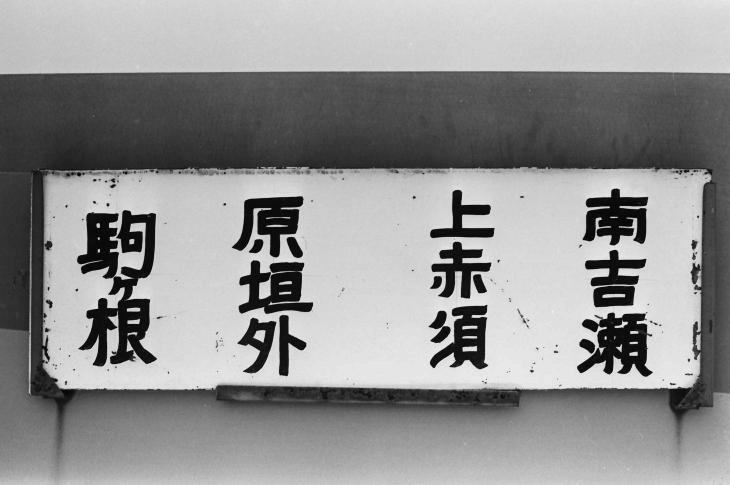 南吉瀬
上赤須
原垣外
駒ヶ根